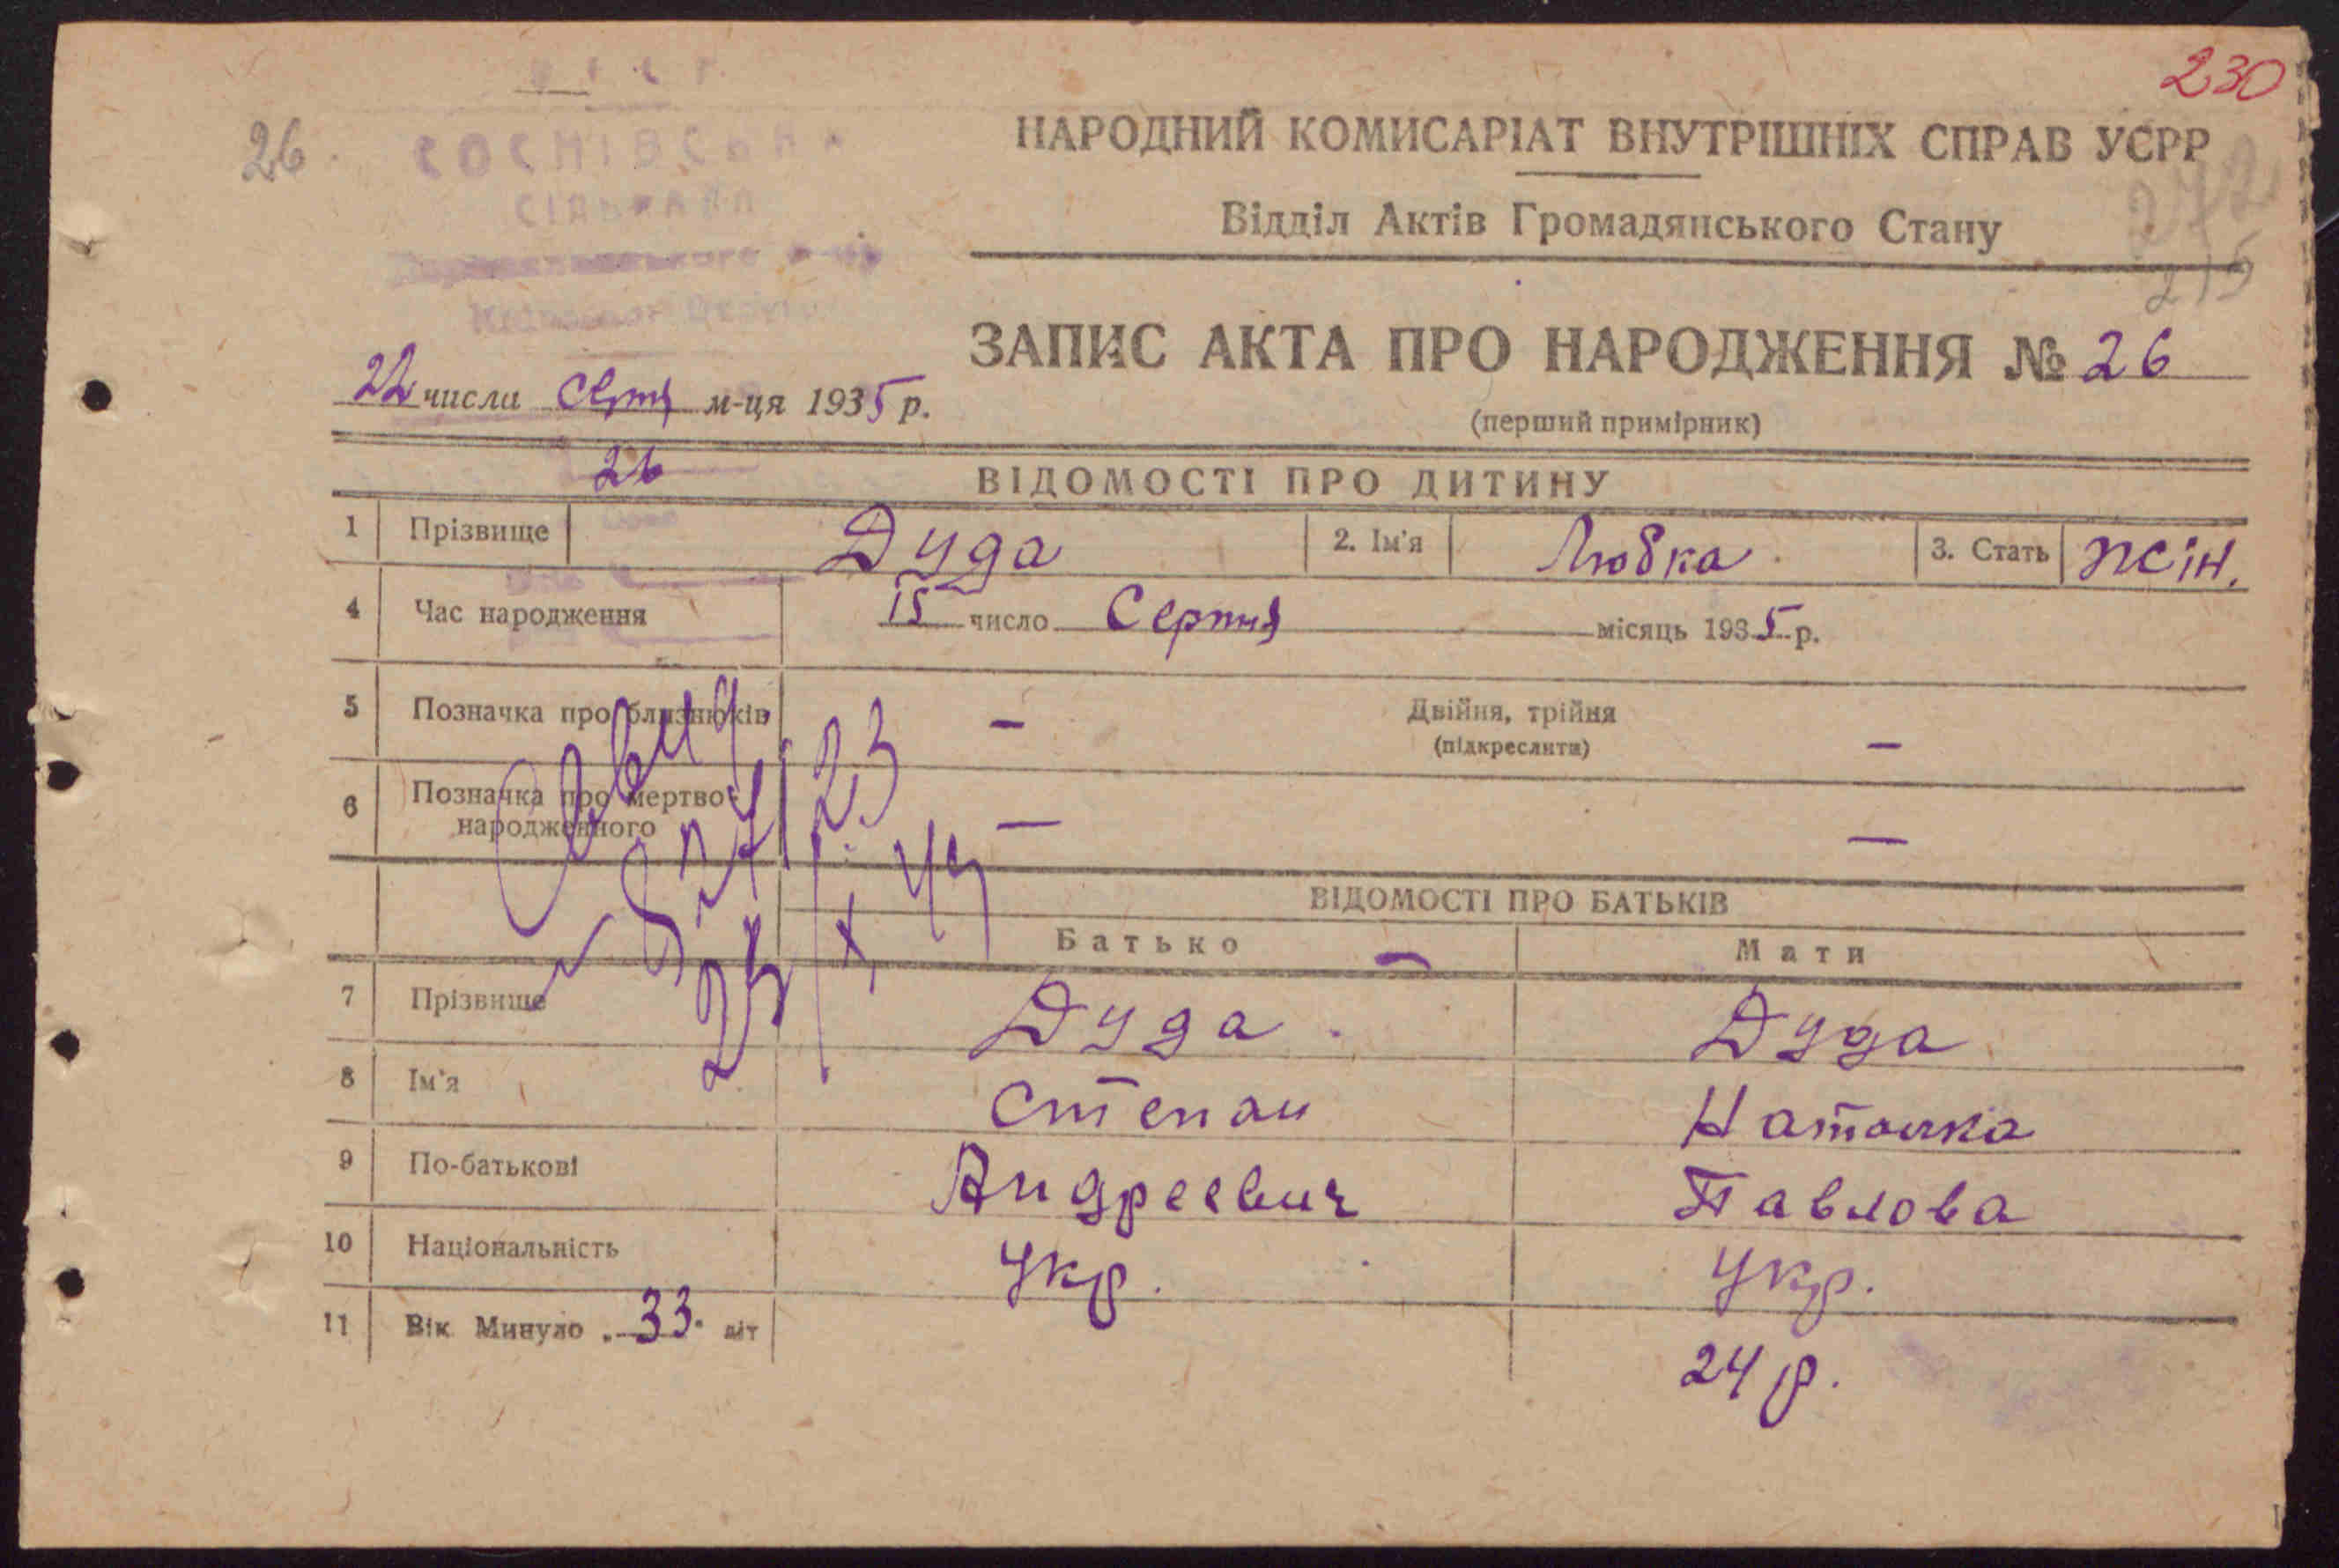 230
26
СОСНІВСЬКА
СІЛЬРАДА
НАРОДНИЙ КОМИСАРІАТ ВНУТРІШНІХ СПРАВ УСРР
Відділ Актів Громадянського Стану
242
215
ЗАПИС АКТА ПРО НАРОДЖЕННЯ № 26
(перший примірник)
22 числа Серпня м-ця 1935 р.
26
ВІДОМОСТІ ПРО ДИТИНУ
1 Прізвище Дуда 2. Ім'я Любка 3. Стать жін.
4 Час народження 15 число Серпня місяць 1935 р.
5 Позначка про близнюків — Двійня, трійня
(підкреслити) —
6 Позначка про мертво-
народженного — —
ВІДОМОСТІ ПРО БАТЬКІВ
Батько Мати
7 Прізвище Дуда Дуда
8 Ім'я Степан Наталка
9 По-батькові Андреевич Павлова
10 Національність Укр. Укр.
11 Вік Минуло 33 літ 24 р.